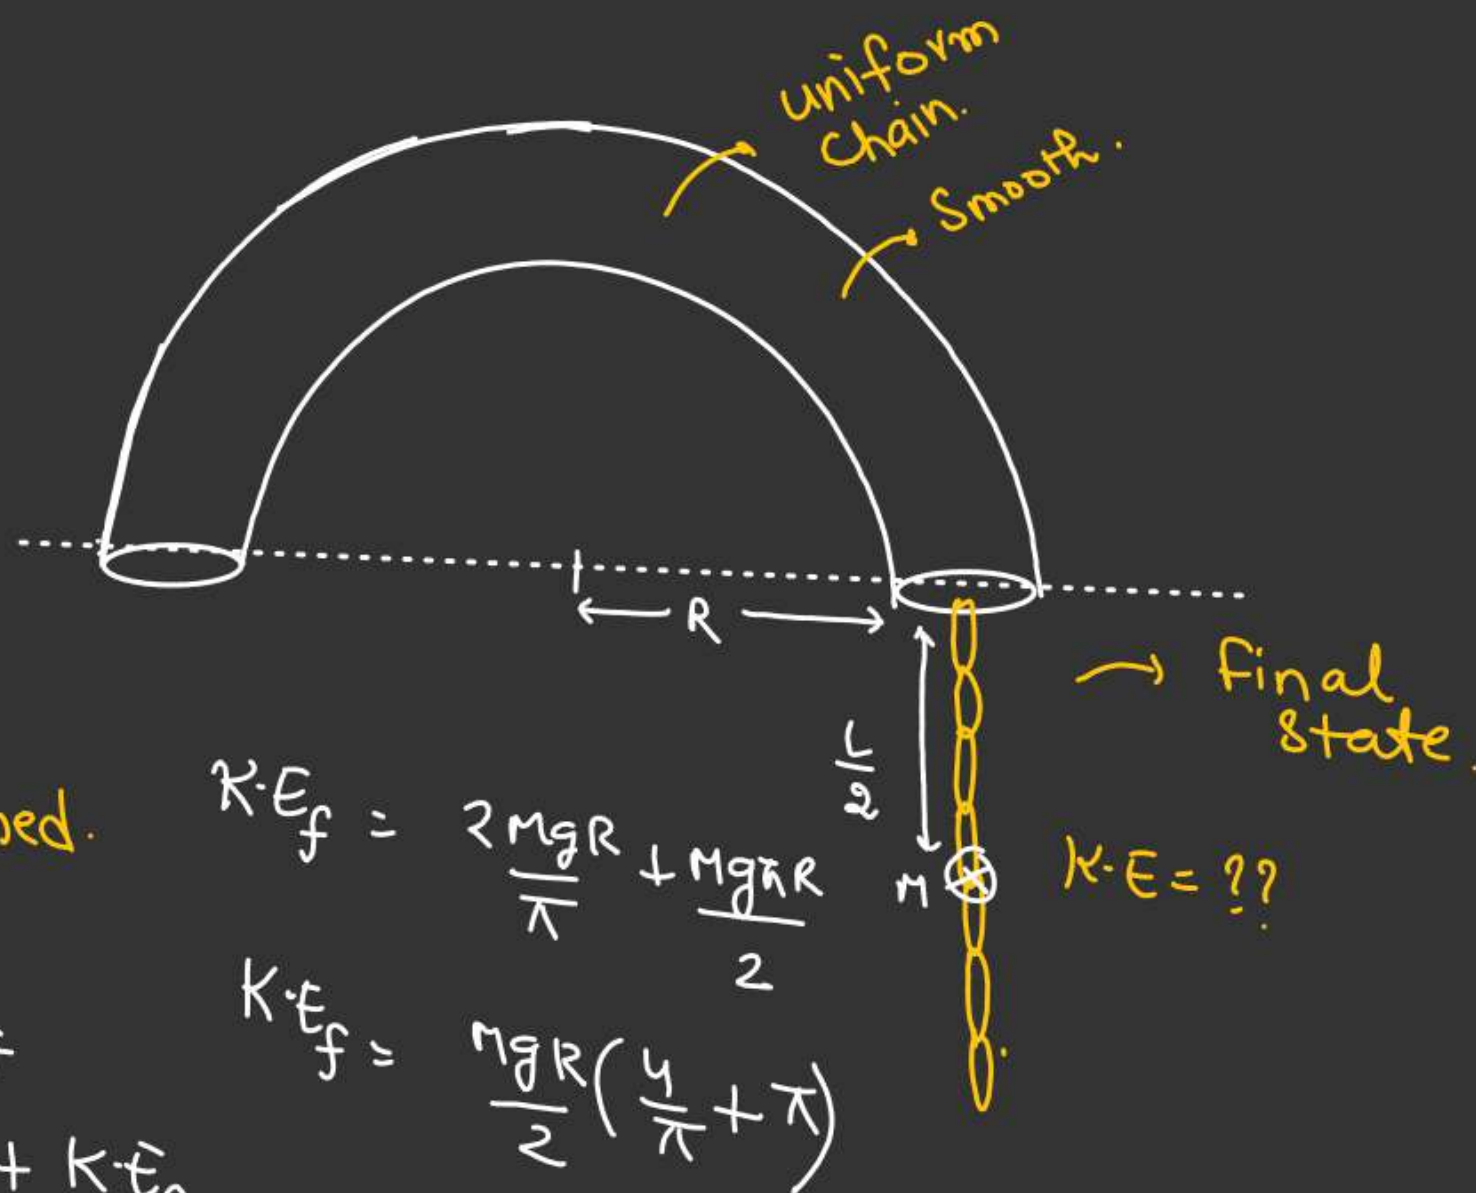 uniform
chain.
Smooth.
R
L/2
Final
state.
K.E_f = 2MgR/π + MgπR/2
M
K.E = ??
K.E_f = MgR/2 (4/π + π)
+ K.E